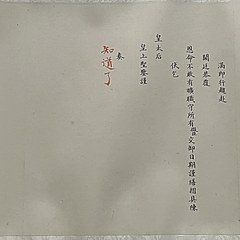 滿即行趨赴
闕廷恭覆
恩命不敢有曠職守所有暫交卸日期謹繕摺具陳
伏乞
皇太后
皇上聖鑒謹
奏
知道了